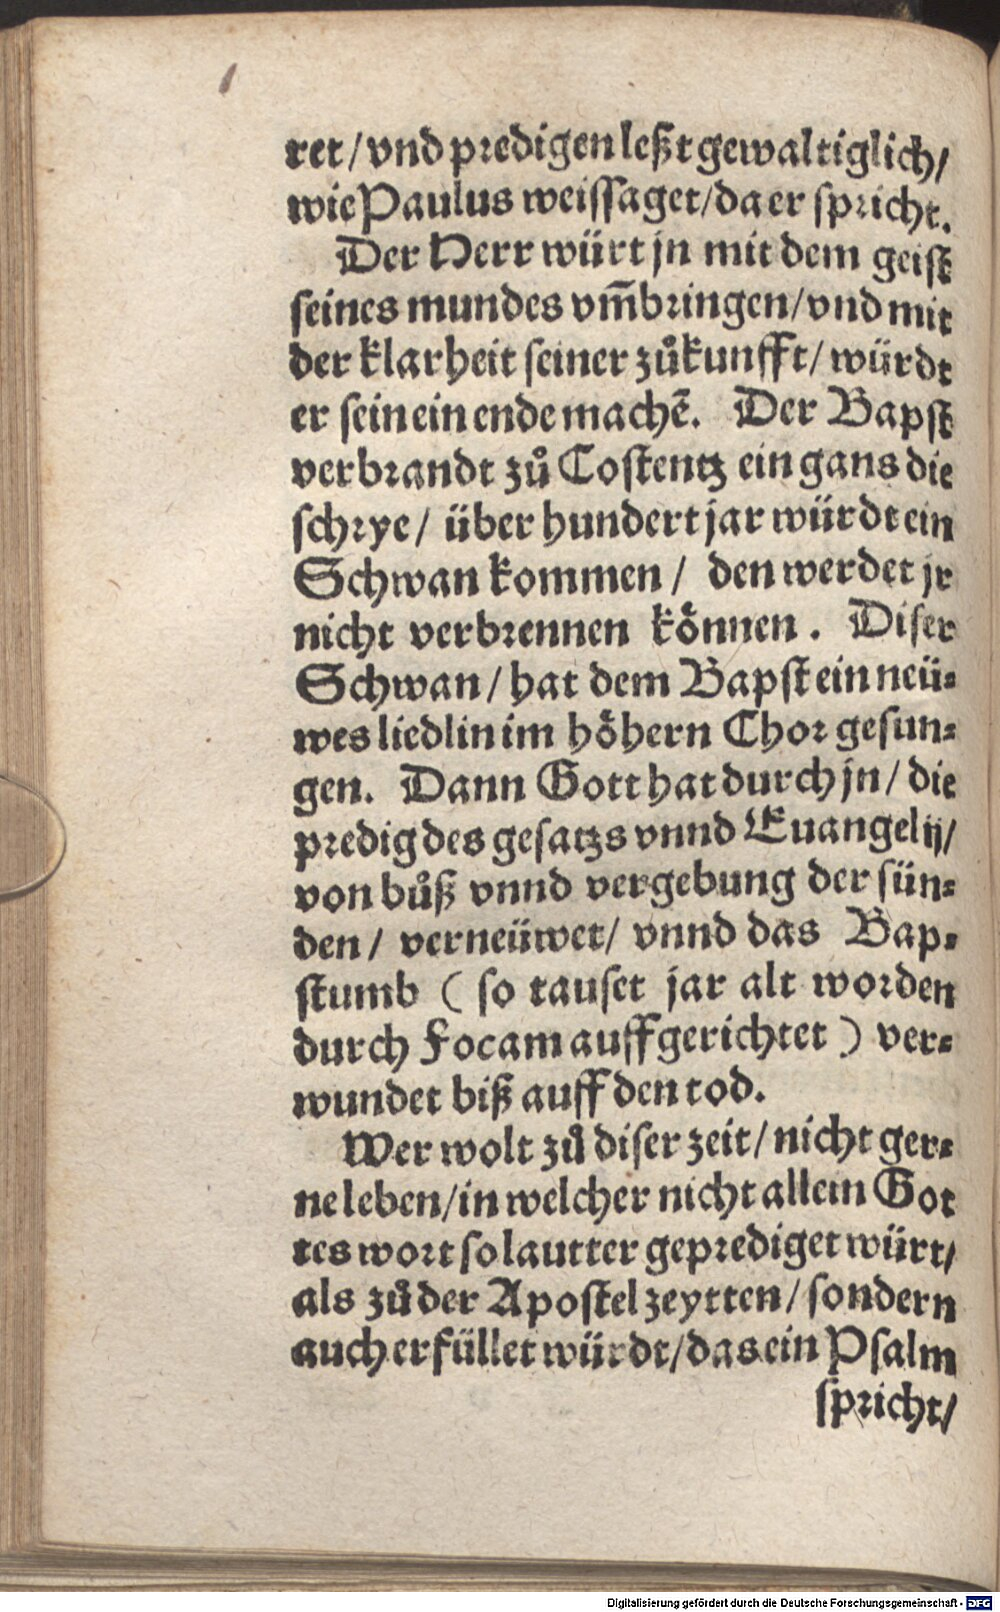 ret/ vnd predigen leßt gewaltiglich/
wie Paulus weissaget/ da er spricht.
Der Herr würt jn mit dem geist
seines mundes vm̃bringen/ vnd mit
der klarheit seiner zůkunfft/ würdt
er sein ein ende machẽ. Der Bapst
verbrandt zů Costentz ein gans die
schrye/ über hundert jar würdt ein
Schwan kommen/ den werdet jr
nicht verbrennen koͤnnen. Diser
Schwan/ hat dem Bapst ein neü-
wes liedlin im hoͤhern Chor gesun-
gen. Dann Gott hat durch jn/ die
predig des gesatzs vnnd Euangelij/
von bůß vnnd vergebung der sün-
den/ verneüwet/ vnnd das Bap-
stumb ( so tauset jar alt worden
durch Focam auffgerichtet ) ver-
wundet biß auff den tod.
Wer wolt zů diser zeit/ nicht ger-
ne leben/ in welcher nicht allein Got
tes wort so lautter geprediget würt/
als zů der Apostel zeytten/ sondern
auch erfüllet würdt/ das ein Psalm
spricht/
Digitalisierung gefördert durch die Deutsche Forschungsgemeinschaft - DFG